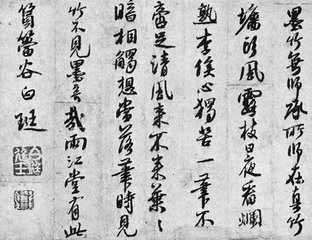 墨竹無師承所師在真竹
墉頭風露枝日夜看爛
熟李侯心獨苦一筆不
足清風來不來葉〻
暗相觸想當落筆時見
竹不見墨奇哉兩江堂有此
篔簹谷白珽